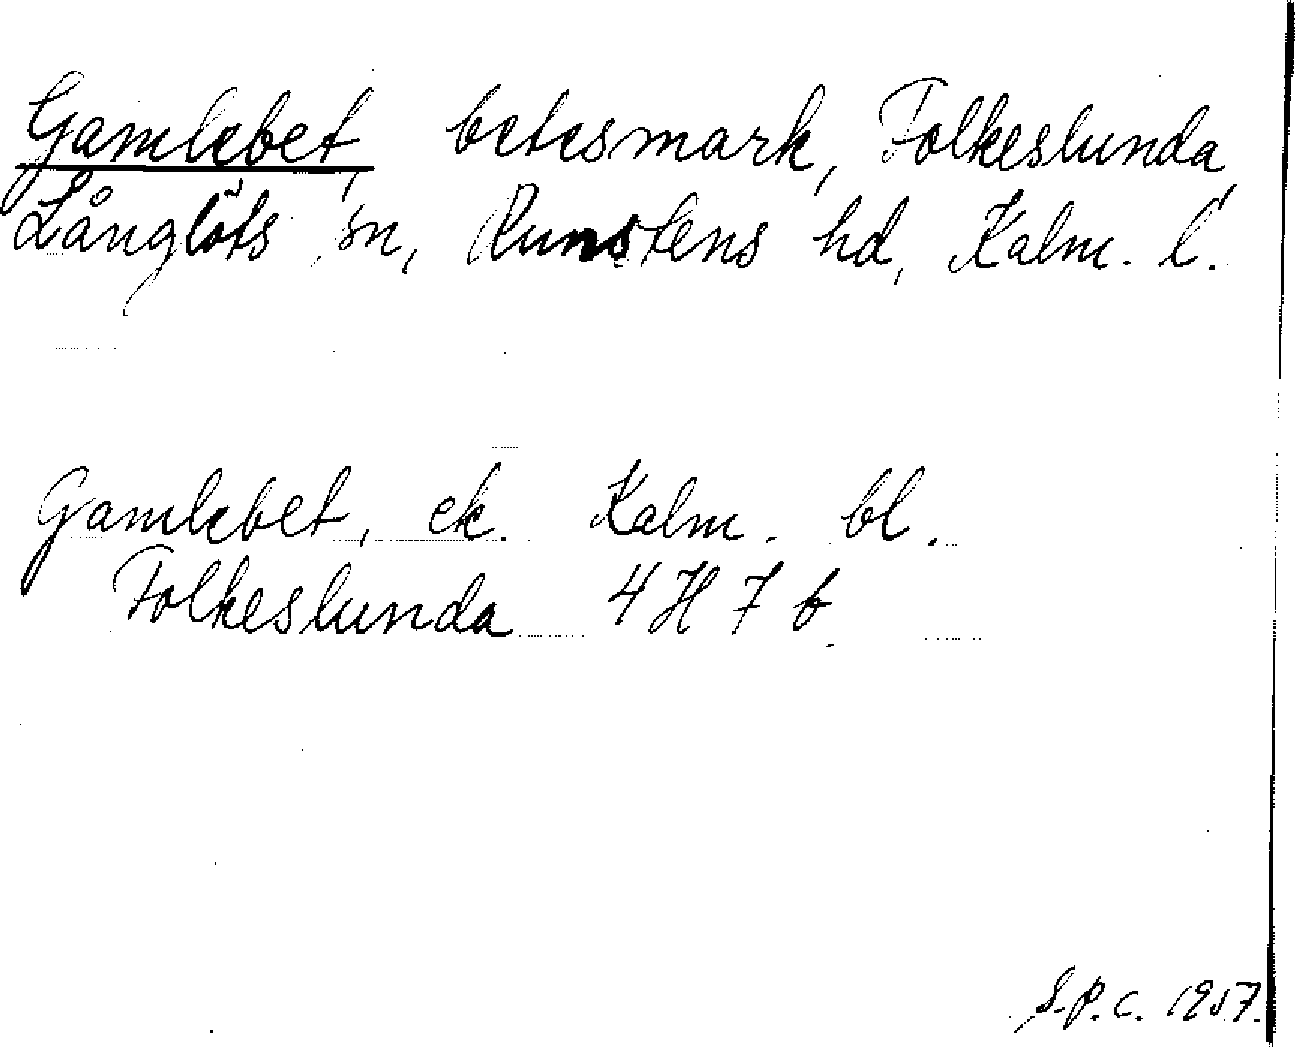 Gamlebet, betesmark, Folkeslunda,
Långlöts sn, Runstens hd, Kalm. l.
Gamlebet, ek. Kalm. bl.
Folkeslunda 4 H 7 b
S.P.C. 1957.